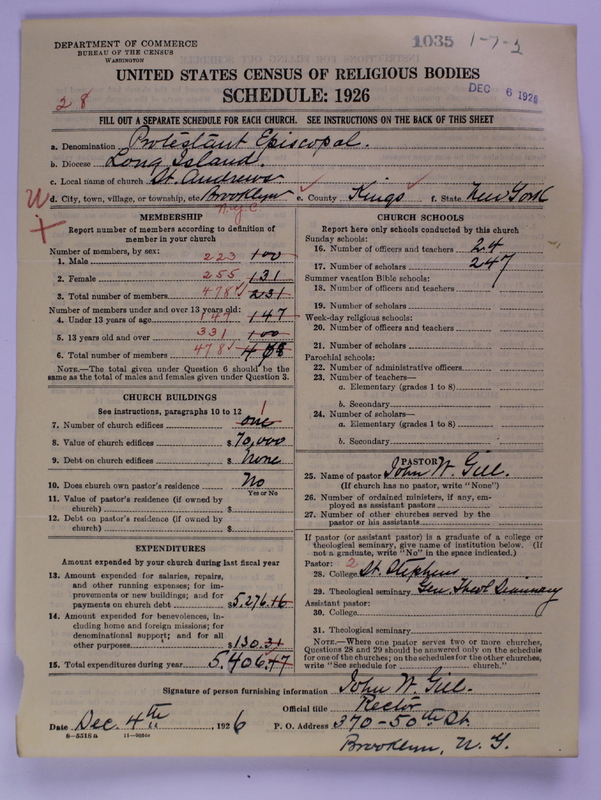 DEPARTMENT OF COMMERCE
BUREAU OF THE CENSUS
WASHINGTON
1035 1-7-2
UNITED STATES CENSUS OF RELIGIOUS BODIES
SCHEDULE: 1926
28
DEC 6 1926
FILL OUT A SEPARATE SCHEDULE FOR EACH CHURCH. SEE INSTRUCTIONS ON THE BACK OF THIS SHEET
a. Denomination Protestant Episcopal.
b. Diocese Long Island.
c. Local name of church St. Andrews
d. City, town, village, or township, etc. Brooklyn e. County Kings f. State New York
N.Y.C
MEMBERSHIP
Report number of members according to definition of
member in your church
Number of members, by sex:
1. Male 223 100
2. Female 255 131
3. Total number of members 478 231
Number of members under and over 13 years old:
4. Under 13 years of age 147 147
5. 13 years old and over 331 100
6. Total number of members 478
NOTE.—The total given under Question 6 should be the
same as the total of males and females given under Question 3.
CHURCH BUILDINGS
See instructions, paragraphs 10 to 12
7. Number of church edifices one 1
8. Value of church edifices $70,000
9. Debt on church edifices $ None
10. Does church own pastor's residence No
Yes or No
11. Value of pastor's residence (if owned by
church) $
12. Debt on pastor's residence (if owned by
church) $
EXPENDITURES
Amount expended by your church during last fiscal year
13. Amount expended for salaries, repairs,
and other running expenses; for im-
provements or new buildings; and for
payments on church debt $5,276.16
14. Amount expended for benevolences, in-
cluding home and foreign missions; for
denominational support; and for all
other purposes $130.31
15. Total expenditures during year 5,406.47
CHURCH SCHOOLS
Report here only schools conducted by this church
Sunday schools:
16. Number of officers and teachers 24
17. Number of scholars 247
Summer vacation Bible schools:
18. Number of officers and teachers
19. Number of scholars
Week-day religious schools:
20. Number of officers and teachers
21. Number of scholars
Parochial schools:
22. Number of administrative officers
23. Number of teachers—
a. Elementary (grades 1 to 8)
b. Secondary
24. Number of scholars—
a. Elementary (grades 1 to 8)
b. Secondary
PASTOR
25. Name of pastor John W. Gill.
(If church has no pastor, write "None")
26. Number of ordained ministers, if any, em-
ployed as assistant pastors
27. Number of other churches served by the
pastor or his assistants
If pastor (or assistant pastor) is a graduate of a college or
theological seminary, give name of institution below. (If
not a graduate, write "No" in the space indicated.)
Pastor: 2
28. College St. Stephens
29. Theological seminary Gen. Theol. Seminary
Assistant pastor:
30. College
31. Theological seminary
NOTE.—Where one pastor serves two or more churches,
Questions 28 and 29 should be answered only on the schedule
for one of the churches; on the schedules for the other churches,
write "See schedule for church."
Signature of person furnishing information John W. Gill.
Official title Rector
Date Dec. 4th, 1926 P. O. Address 370-50th St.
8-5318a
Brooklyn, N.Y.